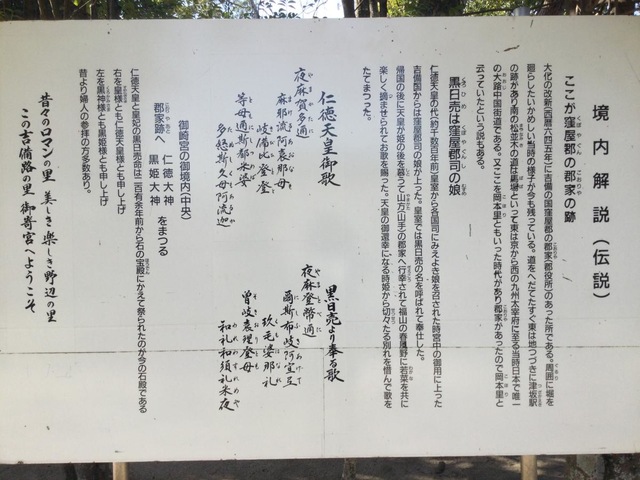 境内解説（伝説）
ここが窪屋郡の郡家の跡
大化の改新（西暦六四五年）に吉備の国窪屋郡の郡家（郡役所）のあった所である。周囲に堀を
廻らしたいかめしい当時の様子が今も残っている。道をへだてたすぐ東は地つづきに津坂駅
の跡があり南の松並木の道は馬場といって東は京から西の九州太宰府に至る当時日本で唯一
の大路中国街道である。又ここを岡本里ともいった時代があり郡家があったので岡本里と
云っていたという説もある。
黒日売は窪屋郡司の娘
仁徳天皇の代（約千数百年前）皇室から各国司にみえよき娘を召された時宮中の御用に上った
吉備国からは窪屋郡司の娘が上った。皇室では黒日売の名を呼ばれて奉仕した。
帰国の後に天皇が姫の後を慕うて山方（山手）の郡家へ行幸されて福山の春風野に若菜を共に
楽しく摘ませられてお歌を賜った。天皇の御還幸になる時姫から切々たる別れを惜んで歌を
たてまつった。
仁徳天皇御歌
夜麻賀多邇
麻耶流阿袁那母
岐備比登登
等母邇斯都米婆
多怒斯久母阿流迦
黒日売より奉る歌
夜麻登幣邇
爾斯布岐阿宜弖
玖毛婆那礼
曽岐袁理登母
和礼和須礼米夜
御崎宮の御境内（中央）
郡家跡へ 仁徳大神 黒姫大神 をまつる
仁徳天皇と皇妃の黒日売命は二百有余年前から石の宝殿にかえて祭られたのが今の石殿である
右を皇様とも仁徳天皇様とも申し上げ
左を黒神様とも黒姫様とも申し上げ
昔より婦人の参拝の方多数あり。
昔々のロマンの里 美しき楽しき野辺の里
この吉備路の里 御寄宮へようこそ